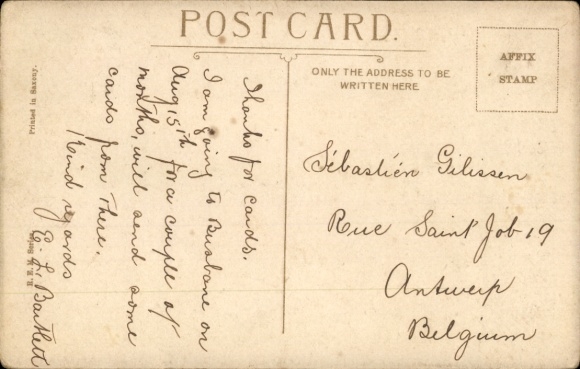 POST CARD.
ONLY THE ADDRESS TO BE
WRITTEN HERE
AFFIX
STAMP
Thanks for cards.
I am going to Brisbane on
Aug 15th for a couple of
months, will send some
cards from there.
Kind regards
E. L. Bartlett
Sébastién Gilissen
Rue Saint Job 19
Antwerp
Belgium
Printed in Saxony.